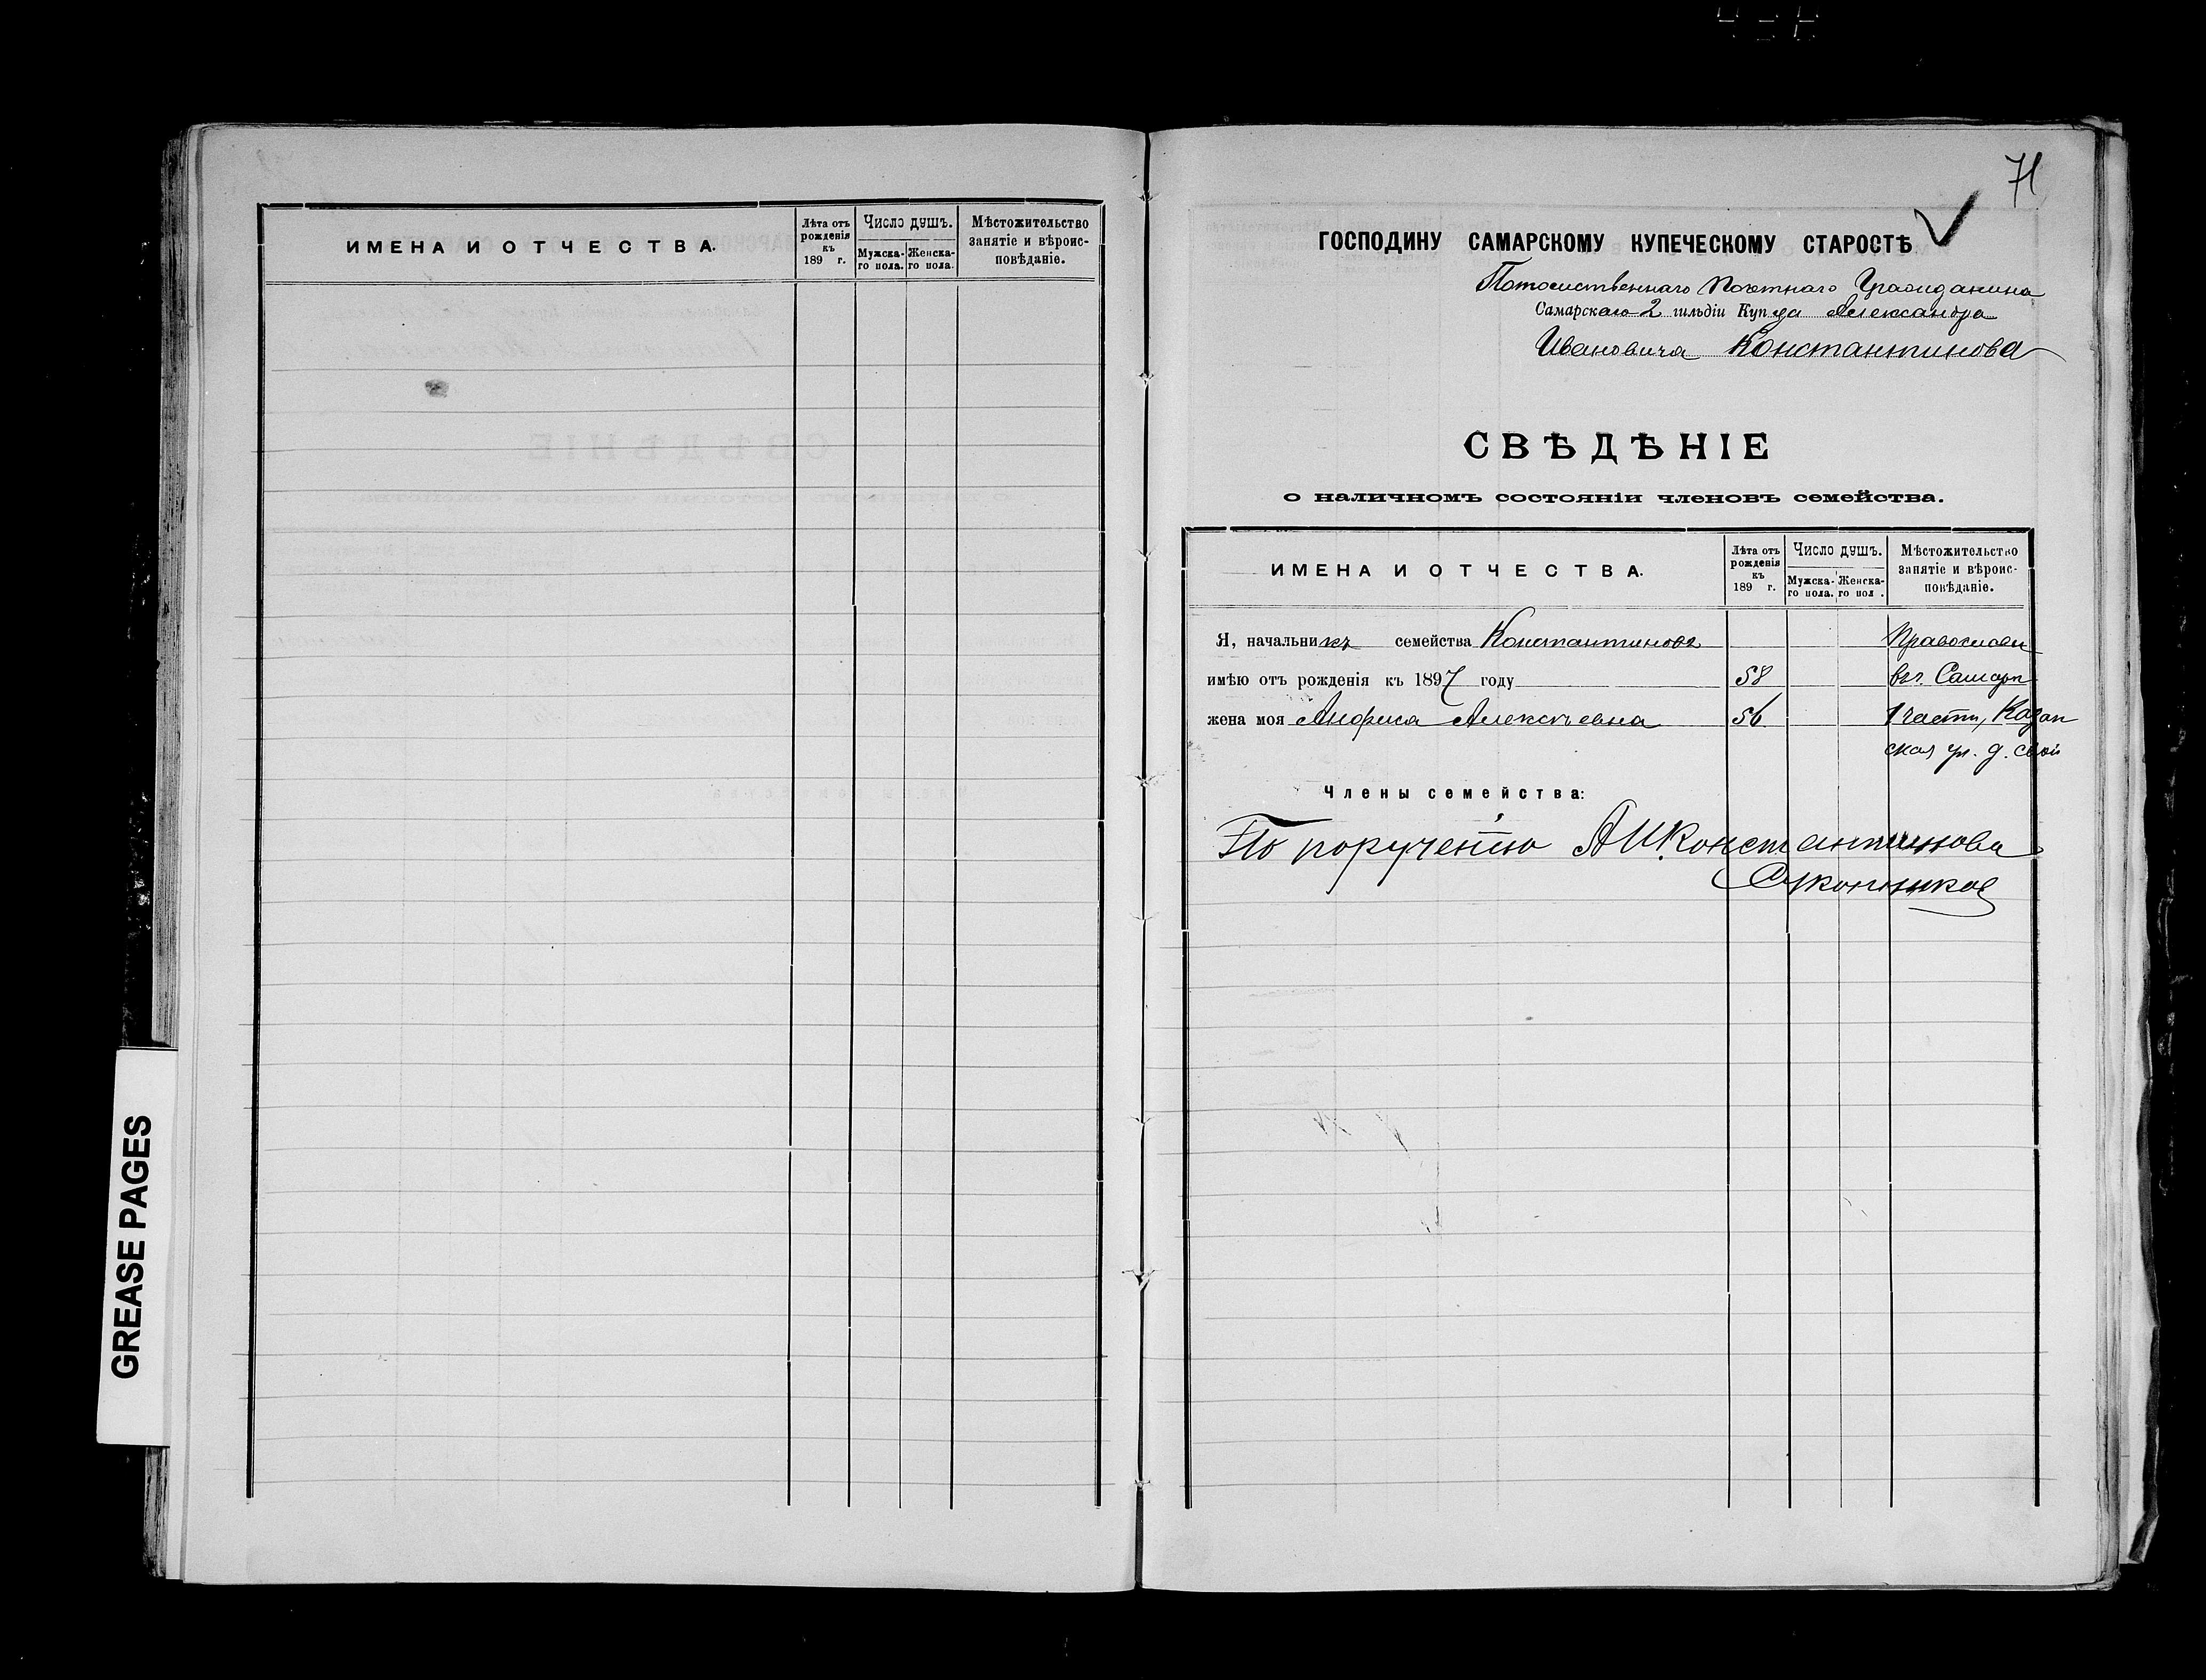 ИМЕНА И ОТЧЕСТВА.
Лѣта отъ рожденія къ 189 г.
Число душъ.
Мужска-го пола.
Женска-го пола.
Мѣстожительство занятіе и вѣроис-повѣданіе.
GREASE PAGES
71
ГОСПОДИНУ САМАРСКОМУ КУПЕЧЕСКОМУ СТАРОСТѢ
Потомственнаго Почетнаго Гражданина
Самарскаго 2 гильдіи Купца Александра
Ивановича Константинова
СВѢДѢНІЕ
о наличномъ состояніи членовъ семейства.
ИМЕНА И ОТЧЕСТВА.
Лѣта отъ рожденія къ 189 г.
Число душъ.
Мужска-го пола.
Женска-го пол .
Мѣстожительство занятіе и вѣроис-повѣданіе.
Я, начальникъ семейства Константиновъ Православн
имѣю отъ рожденія къ 1897 году 58 въ г. Самарѣ
жена моя Анфиса Алексѣевна 56 1 части, Казан
ская ул. д. свой
Члены семейства:
По порученію А И Константинова